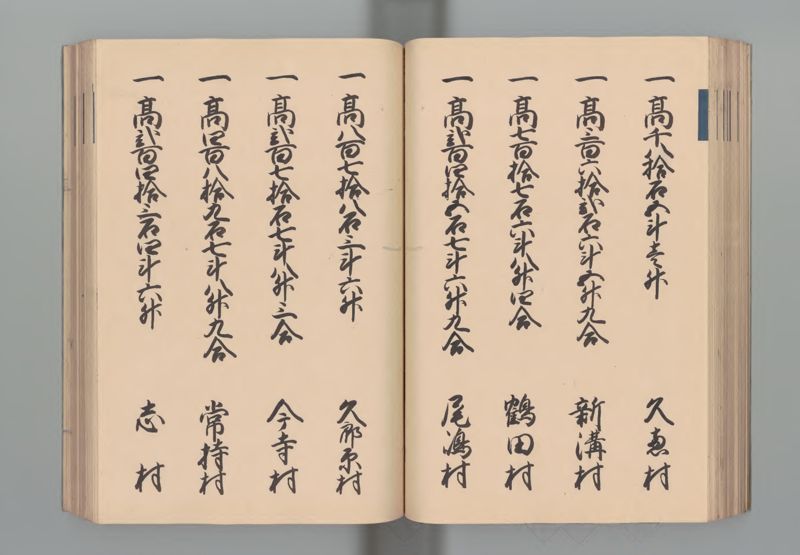 一高千八拾石五斗壱升 久恵村
一高三百六拾弐石六斗五升九合 新溝村
一高七百拾七石六斗八升四合 鶴田村
一高弐百四拾五石七斗六升九合 尾嶋村
一高八百七拾八石三斗六升 久郎原村
一高弐百七拾石七斗八升三合 今寺村
一高四百八拾九石七斗八升九合 常持村
一高弐百四拾三石四斗六升 志村